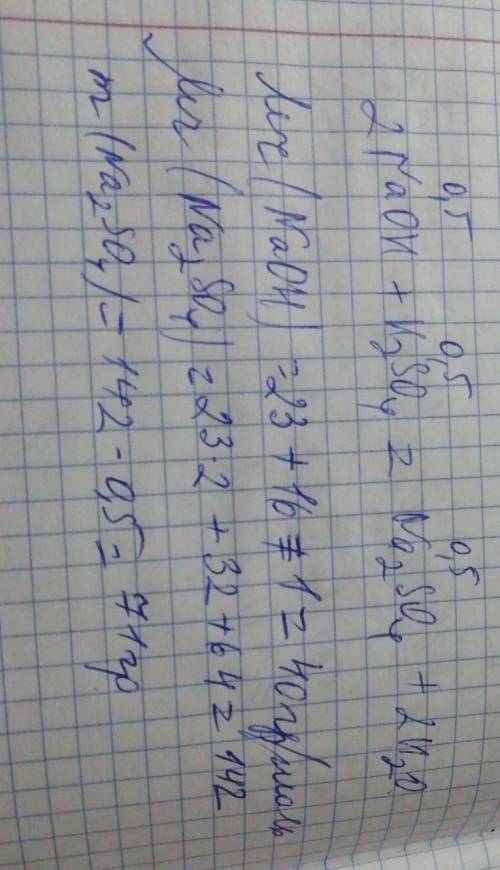 0,5 0,5 0,5
2NaOH + H₂SO₄ = Na₂SO₄ + 2H₂O
Mr (NaOH) = 23 + 16 + 1 = 40 гр/моль
Mr (Na₂SO₄) = 23·2 + 32 + 64 = 142
m (Na₂SO₄) = 142 · 0,5 = 71 гр